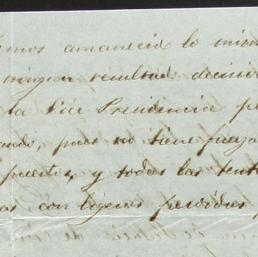 emos amanecido lo mismo
ningun resultado decisiv
la Vice Presidencia pe
ando, pues no tiene fuerza
puestos, y todas las tent
as con ligeras perdidas